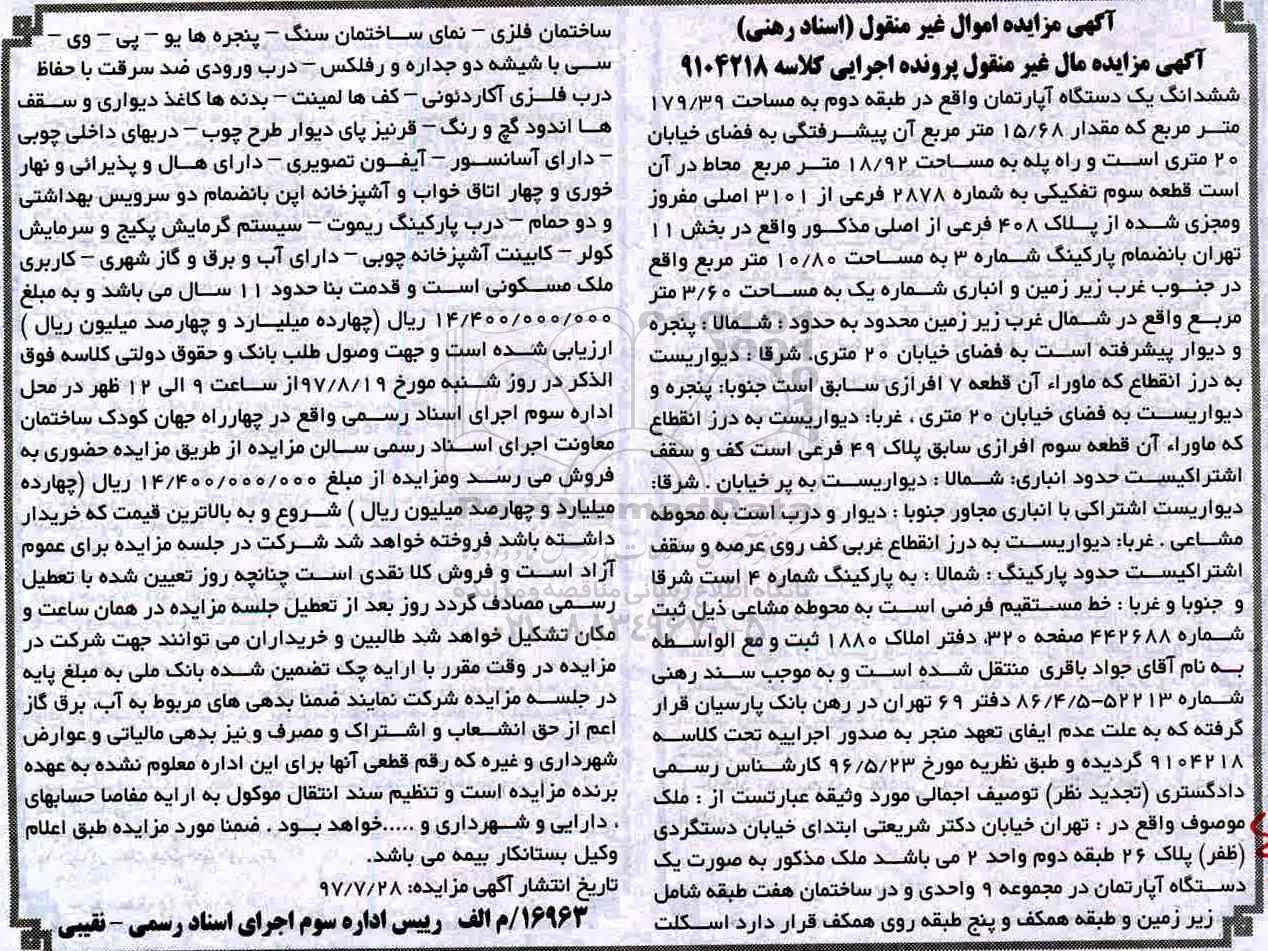 آگهی مزایده اموال غیر منقول (اسناد رهنی)
آگهی مزایده مال غیر منقول پرونده اجرایی کلاسه ۹۱۰۴۲۱۸
ششدانگ یک دستگاه آپارتمان واقع در طبقه دوم به مساحت ۱۷۹/۳۹
متر مربع که مقدار ۱۵/۶۸ متر مربع آن پیشرفتگی به فضای خیابان
۲۰ متری است و راه پله به مساحت ۱۸/۹۲ متر مربع محاط در آن
است قطعه سوم تفکیکی به شماره ۲۸۷۸ فرعی از ۳۱۰۱ اصلی مفروز
ومجزی شده از پلاک ۴۰۸ فرعی از اصلی مذکور واقع در بخش ۱۱
تهران بانضمام پارکینگ شماره ۳ به مساحت ۱۰/۸۰ متر مربع واقع
در جنوب غرب زیر زمین و انباری شماره یک به مساحت ۳/۶۰ متر
مربع واقع در شمال غرب زیر زمین محدود به حدود : شمالا : پنجره
و دیوار پیشرفته است به فضای خیابان ۲۰ متری. شرقا : دیواریست
به درز انقطاع که ماوراء آن قطعه ۷ افرازی سابق است جنوبا: پنجره و
دیواریست به فضای خیابان ۲۰ متری . غربا: دیواریست به درز انقطاع
که ماوراء آن قطعه سوم افرازی سابق پلاک ۴۹ فرعی است کف و سقف
اشتراکیست حدود انباری: شمالا : دیواریست به پر خیابان . شرقا:
دیواریست اشتراکی با انباری مجاور جنوبا : دیوار و درب است به محوطه
مشاعی . غربا: دیواریست به درز انقطاع غربی کف روی عرصه و سقف
اشتراکیست حدود پارکینگ : شمالا : به پارکینگ شماره ۴ است شرقا
و جنوبا و غربا : خط مستقیم فرضی است به محوطه مشاعی ذیل ثبت
شماره ۴۴۲۶۸۸ صفحه ۳۲۰، دفتر املاک ۱۸۸۰ ثبت و مع الواسطه
به نام آقای جواد باقری منتقل شده است و به موجب سند رهنی
شماره ۵۲۲۱۳-۸۶/۴/۵ دفتر ۶۹ تهران در رهن بانک پارسیان قرار
گرفته که به علت عدم ایفای تعهد منجر به صدور اجراییه تحت کلاسه
۹۱۰۴۲۱۸ گردیده و طبق نظریه مورخ ۹۶/۵/۲۳ کارشناس رسمی
دادگستری (تجدید نظر) توصیف اجمالی مورد وثیقه عبارتست از : ملک
موصوف واقع در : تهران خیابان دکتر شریعتی ابتدای خیابان دستگردی
(ظفر) پلاک ۲۶ طبقه دوم واحد ۲ می باشد ملک مذکور به صورت یک
دستگاه آپارتمان در مجموعه ۹ واحدی و در ساختمان هفت طبقه شامل
زیر زمین و طبقه همکف و پنج طبقه روی همکف قرار دارد اسکلت
ساختمان فلزی – نمای ساختمان سنگ – پنجره ها یو – پی – وی –
سی با شیشه دو جداره و رفلکس – درب ورودی ضد سرقت با حفاظ
درب فلزی آکاردئونی – کف ها لمینت – بدنه ها کاغذ دیواری و سقف
ها اندود گچ و رنگ – قرنیز پای دیوار طرح چوب – دربهای داخلی چوبی
– دارای آسانسور – آیفون تصویری – دارای هال و پذیرائی و نهار
خوری و چهار اتاق خواب و آشپزخانه اپن بانضمام دو سرویس بهداشتی
و دو حمام – درب پارکینگ ریموت – سیستم گرمایش پکیج و سرمایش
کولر – کابینت آشپزخانه چوبی – دارای آب و برق و گاز شهری – کاربری
ملک مسکونی است و قدمت بنا حدود ۱۱ سال می باشد و به مبلغ
۱۴/۴۰۰/۰۰۰/۰۰۰ ریال (چهارده میلیارد و چهارصد میلیون ریال )
ارزیابی شده است و جهت وصول طلب بانک و حقوق دولتی کلاسه فوق
الذکر در روز شنبه مورخ ۹۷/۸/۱۹از ساعت ۹ الی ۱۲ ظهر در محل
اداره سوم اجرای اسناد رسمی واقع در چهارراه جهان کودک ساختمان
معاونت اجرای اسناد رسمی سالن مزایده از طریق مزایده حضوری به
فروش می رسد ومزایده از مبلغ ۱۴/۴۰۰/۰۰۰/۰۰۰ ریال (چهارده
میلیارد و چهارصد میلیون ریال ) شروع و به بالاترین قیمت که خریدار
داشته باشد فروخته خواهد شد شرکت در جلسه مزایده برای عموم
آزاد است و فروش کلا نقدی است چنانچه روز تعیین شده با تعطیل
رسمی مصادف گردد روز بعد از تعطیل جلسه مزایده در همان ساعت و
مکان تشکیل خواهد شد طالبین و خریداران می توانند جهت شرکت در
مزایده در وقت مقرر با ارایه چک تضمین شده بانک ملی به مبلغ پایه
در جلسه مزایده شرکت نمایند ضمنا بدهی های مربوط به آب، برق گاز
اعم از حق انشعاب و اشتراک و مصرف و نیز بدهی مالیاتی و عوارض
شهرداری و غیره که رقم قطعی آنها برای این اداره معلوم نشده به عهده
برنده مزایده است و تنظیم سند انتقال موکول به ارایه مفاصا حسابهای
. دارایی و شهرداری و .....خواهد بود . ضمنا مورد مزایده طبق اعلام
وکیل بستانکار بیمه می باشد.
تاریخ انتشار آگهی مزایده: ۹۷/۷/۲۸
۱۶۹۶۳/م الف رییس اداره سوم اجرای اسناد رسمی – نقیبی